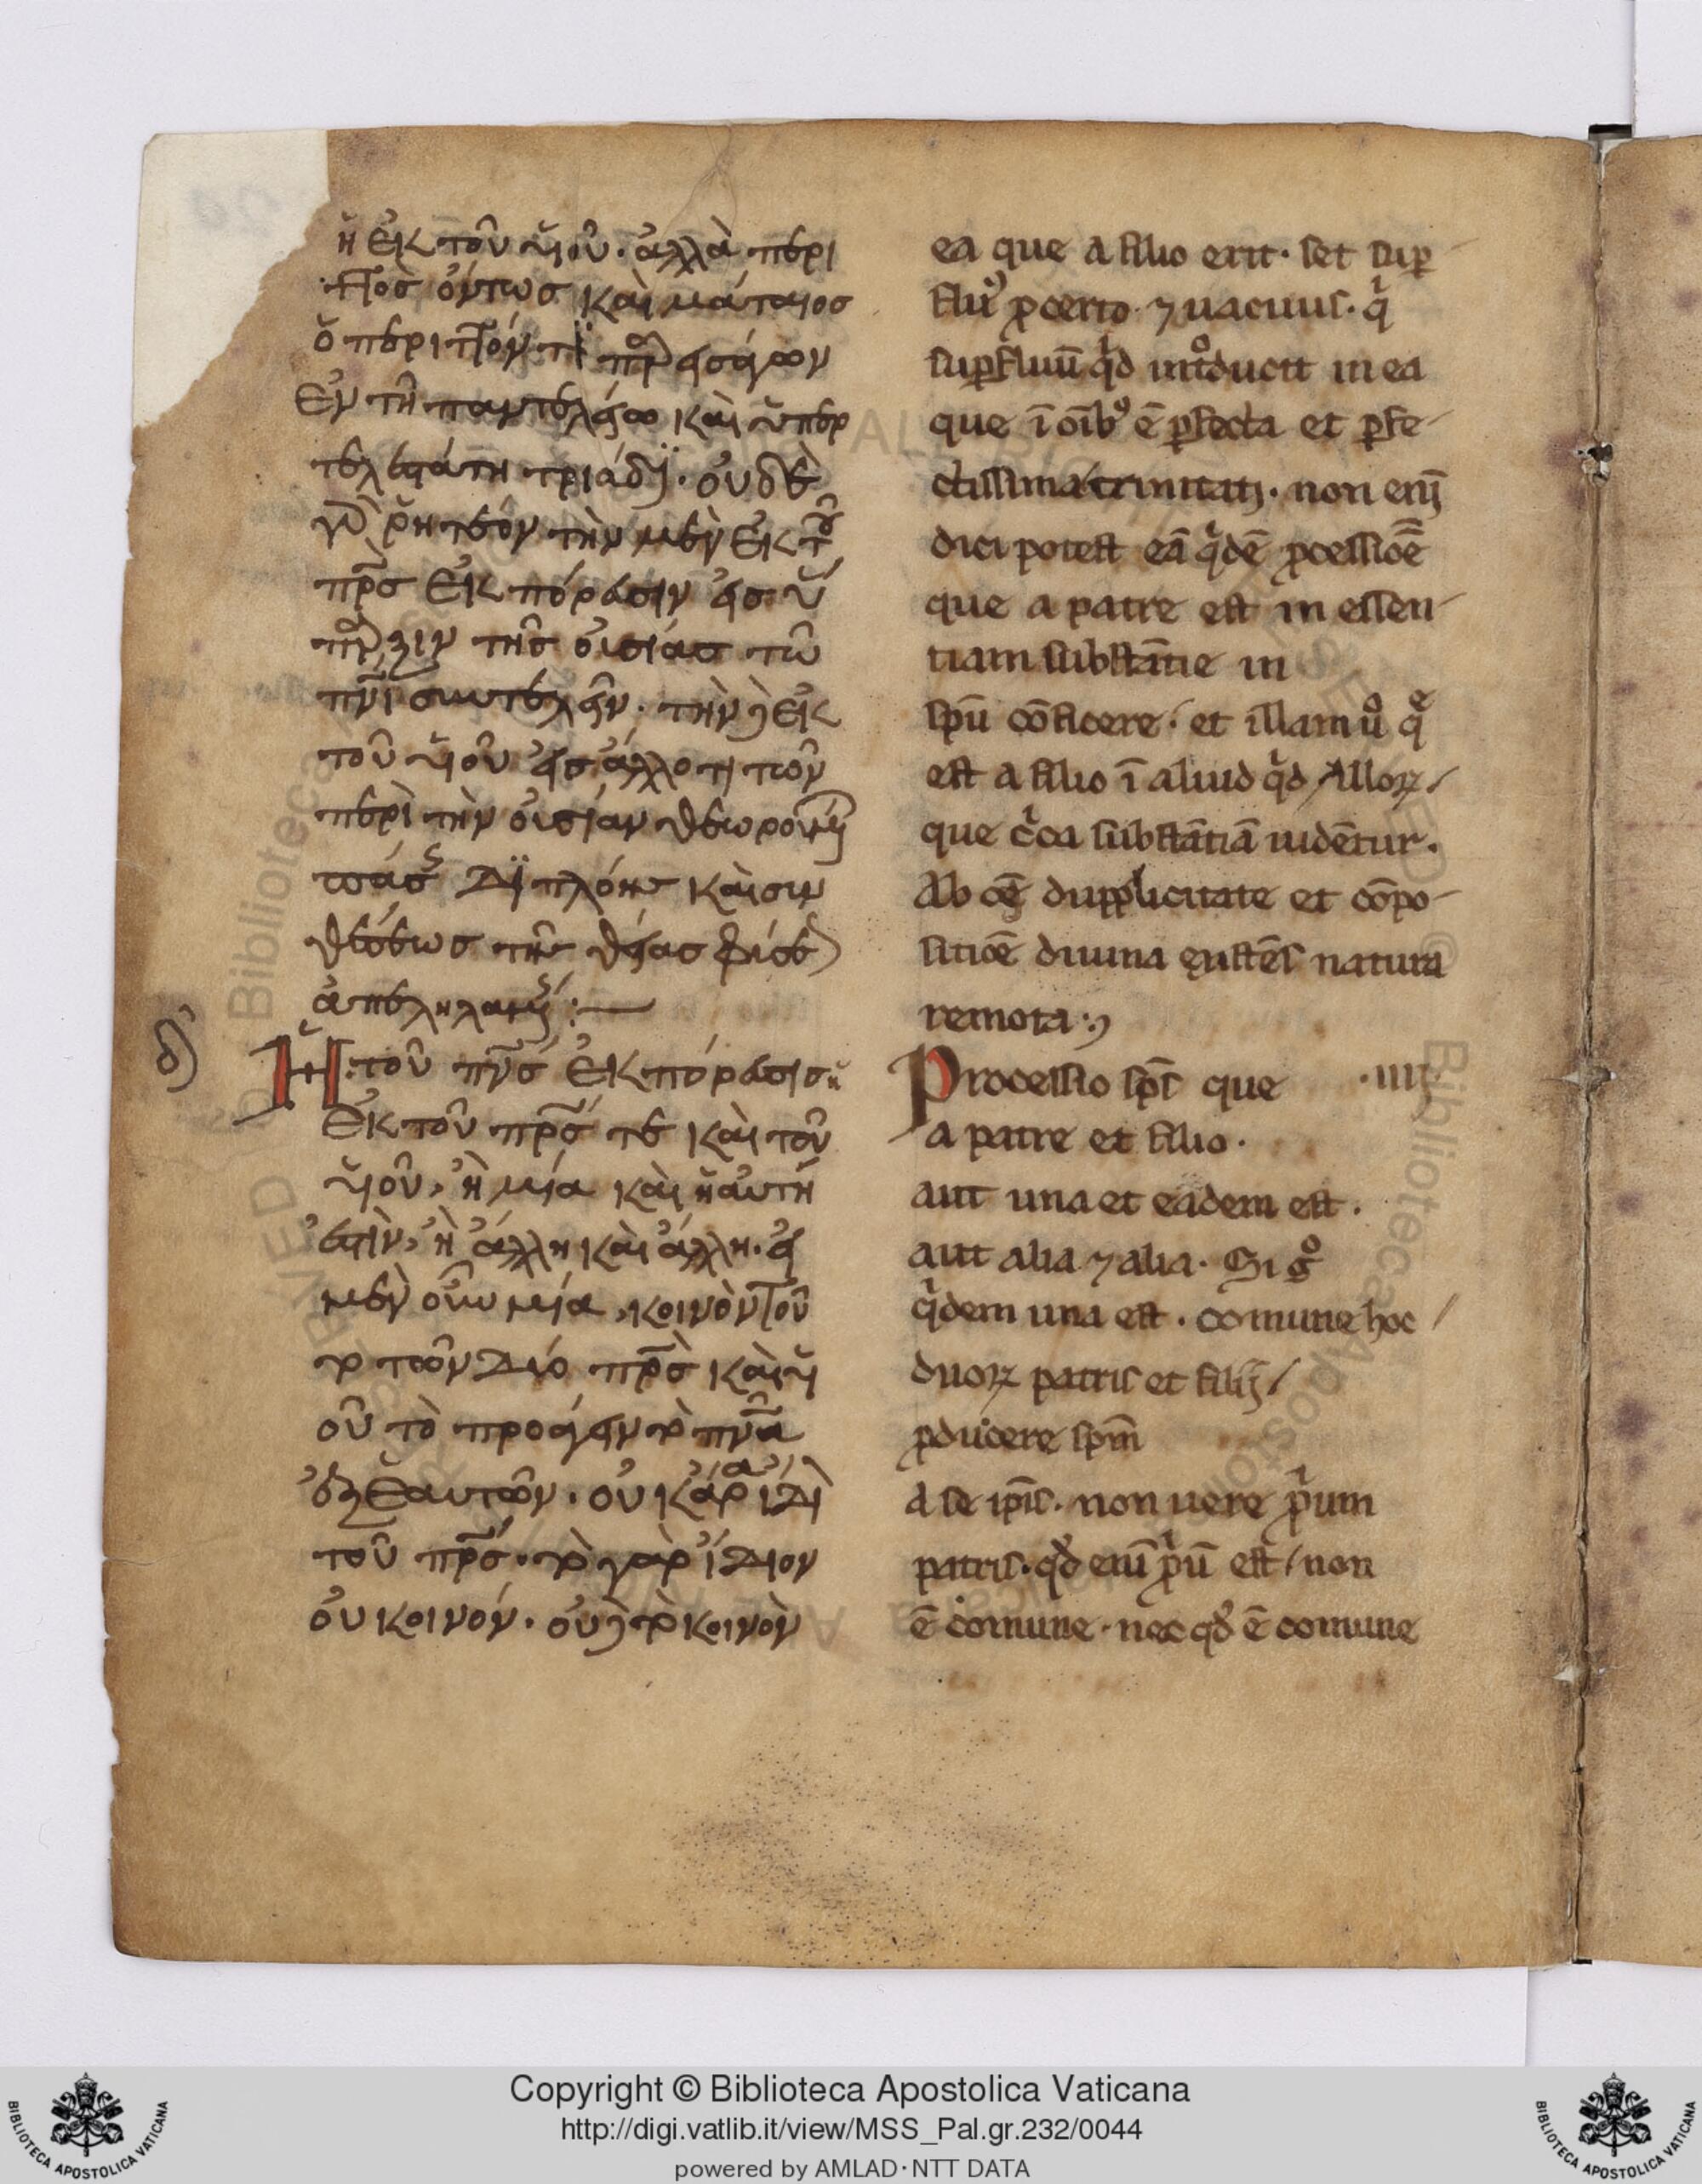 ἡ ἐκ τοῦ υἱοῦ· ἀλλὰ περι
τὸς ὄντως καὶ μάταιος
ὁ περιττόν τι παρεισάγων
ἐν τῆ παντελεία καὶ ὑπερ
τελεστάτη τριάδϊ· οὐδὲ
γὰρ ῥητέον τὴν μὲν ἐκ τοῦ
πρς ἐκπόρευσιν εἰς ὕ
παρξιν τῆς οὐσίας τῶ
πνι συντελεῖν· τὴν δὲ ἐκ
τοῦ υἱοῦ εἰς ἄλλο τι τῶν
περὶ τὴν οὐσίαν θεωρουμέν
Δϊπλόης καὶ συν
θέσεως τῆς θείας φύσεως
ἀπεληλαμένης :—
δ'
Ἡ τοῦ πνς ἐκπόρευσις ἡ
ἐκ τοῦ πρς τε καὶ τοῦ
υἱοῦ, ἢ μία καὶ ἡ αὐτή
ἐστὶν, ἢ ἄλλη καὶ ἄλλη· εἰ
μὲν οὖν μία, κοινὸν τοῦ
το τῶν Δύο πρς καὶ υἱ
οῦ τὸ προάγειν το πνα
ἐξ ἑαυτῶν· οὐκ ἄρα ἴΔι
τοῦ πρς· το γὰρ ἴΔιον
οὐ κοινόν· οὐδὲ το κοινὸν
ea que a filio erit· set sup
fluꝰ ꝓcerto ⁊ uacuus· qͥ
suꝑfluū qͥd intͦducit in ea
que ī oībꝰ ē ꝑfecta et ꝑfe-
ctissima trinitate· non enī
dici potest eā qͥdē ꝓcessiōē
que a patre est in essen-
tiam substātie in
spū cōficere· et illam uͦ q̄
est a filio ī aliud qͥd illoꝝ
que cͥca substātiā uidētur·
Ab oī dupplicitate et cōpo-
sitiōe diuina existēs natura
remota·
Processio sps̄ que ·IIII·
a patre et filio·
aut una et eadem est·
aut alia ⁊ alia· Si gͦ
qͥdem una est· comune hoc
duoꝝ patris et filij
ꝓducere spm̄
a se ipīs· non uere pͥum
patris· qd̄ enī pͥū est non
ē comune· nec qd̄ ē comune
Copyright © Biblioteca Apostolica Vaticana
http://digi.vatlib.it/view/MSS_Pal.gr.232/0044
powered by AMLAD·NTT DATA
BIBLIOTECA APOSTOLICA VATICANA
BIBLIOTECA APOSTOLICA VATICANA